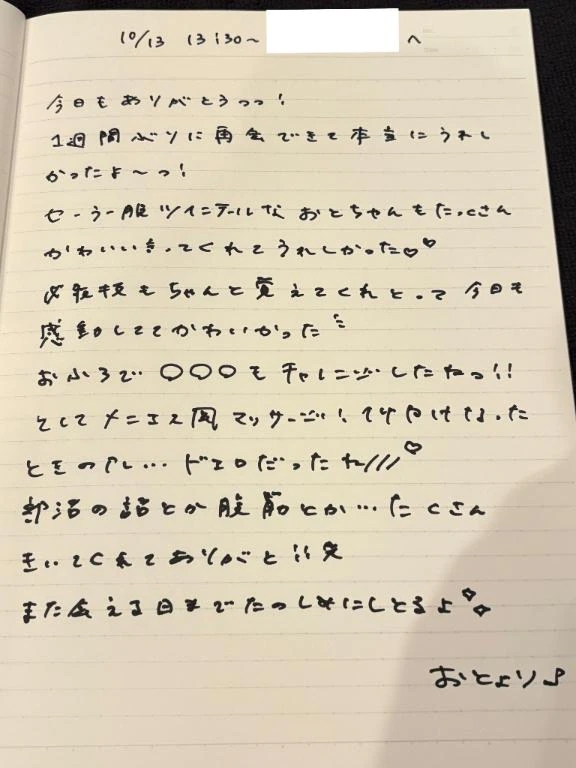 10/13 13:30〜 へ
今日もありがとうっっ!
1週間ぶりに再会できて本当にうれし
かったよ〜っ!
セーラー服ツインテールな おとちゃんもたっくさん
かわいいきってくれてうれしかった♡♡
必殺技もちゃんと覚えてくれとって今日も
感動しててかわいかった
おふろで 〇〇〇もチャレンジしたねっ!!
そしてメニエス風マッサージ! なった
ときの…ドエロだったね///♡
部活の話とか腹筋とか…たくさん
きいてくれてありがと!!笑
また会える日までたのしみにしとるよ
おとより♪